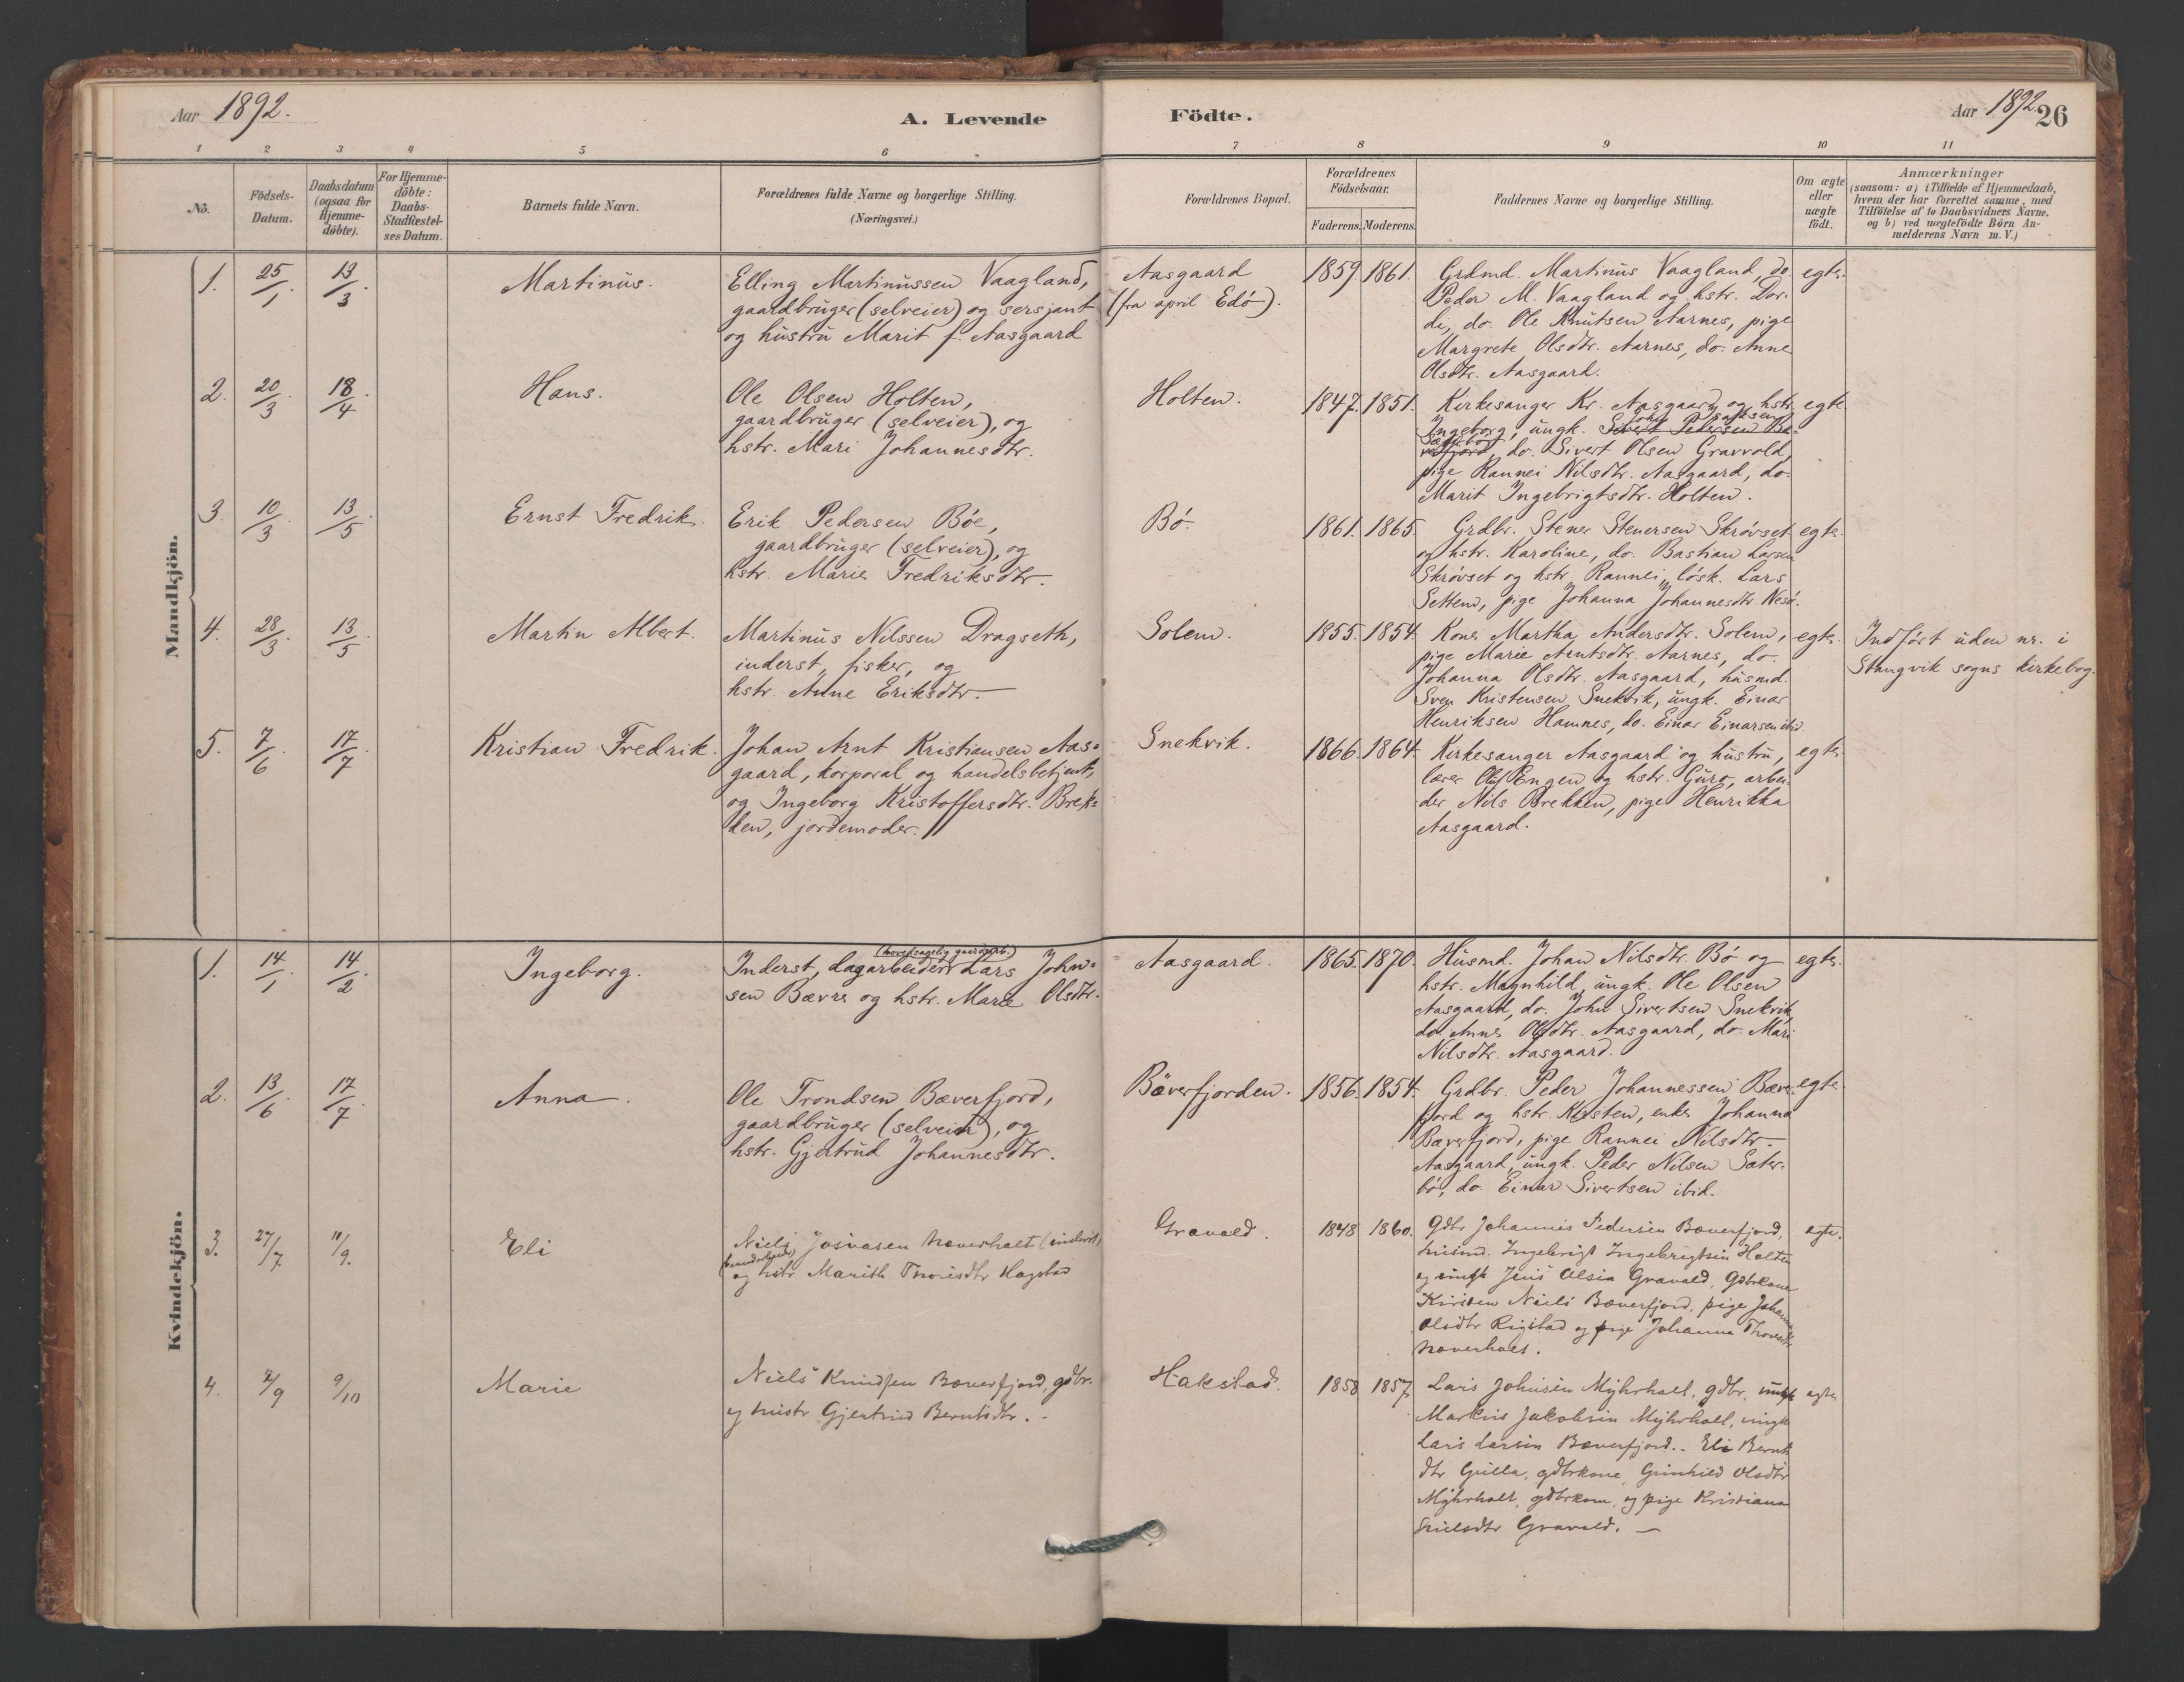 Aar 1892.
A. Levende Födte.
Aar 1892. 26
1 2 3 4 5 6 7 8 9 10 11
No.
Födsels-Datum.
Daabsdatum (ogsaa for Hjemme-döbte).
For Hjemme-döbte: Daabs-Stadfæstel-ses Datum.
Barnets fulde Navn.
Forældrenes fulde Navne og borgerlige Stilling.
(Næringsvei.)
Forældrenes Bopæl.
Forældrenes Födselsaar.
Faderens. Moderens.
Faddernes Navne og borgerlige Stilling.
Om ægte eller uægte födt.
Anmærkninger
(saasom: a) i Tilfælde af Hjemmedaab,
hvem der har forrettet samme, med
Tilföielse af to Daabsvidners Navne.
og b) ved uægtefödte Börn An-
melderens Navn m.V.)
Mandkjön.
1. 25/1. 13/3. Martinus.
Elling Martinussen Vaagland,
gaardbruger (selveier) og sersjant
og hustru Marit f. Aasgaard
Aasgaard
(fra april Edö).
1859. 1861.
Grdmd. Martinus Vaagland, do.
Peder M. Vaagland og hstr. Dor-
di, do. Ole Knutsen Aarnes, pige
Margrete Olsdtr. Aarnes, do. Anne
Olsdtr. Aasgaard.
egte.
2. 20/3. 18/4. Hans.
Ole Olsen Holten,
gaardbruger (selveier), og
hstr. Mari Johannesdtr.
Holten.
1847. 1851.
Kirkesanger Kr. Aasgaard og hstr.
Ingeborg, ungk. Sivert Pedersen Bæ-
verfjord, do. Sivert Olsen Gravvold,
pige Rannei Nilsdtr. Aasgaard, do.
Marit Ingebrigtsdtr. Holten.
egte
3. 10/3. 13/5. Ernst Fredrik.
Erik Pedersen Böe,
gaardbruger (selveier), og
hstr. Marie Fredriksdtr.
Bö.
1861. 1865.
Grdbr. Stener Stenersen Skrövset
og hstr. Karoline, do. Bastian Larsen
Skrövset og hstr. Rannei, lösk. Lars
Settem, pige Johanna Johannesdtr. Nesö.
egte.
4. 28/3. 13/5. Martin Albert.
Martinus Nilssen Dragseth,
inderst, fisker, og
hstr. Anne Eriksdtr.
Solem.
1855. 1854.
Kone Martha Andersdtr. Solem,
pige Marie Arntsdtr. Aarnes, do.
Johanna Olsdtr. Aasgaard, husmd.
Sven Kristensen Snekvik, ungk. Einar
Henriksen Hamnes, do. Einar Einarsen ibid
egte.
Indfört uden nr. i
Stangvik sogns kirkebog.
5. 7/6. 17/7. Kristian Fredrik.
Johan Arnt Kristiansen Aas-
gaard, korporal og handelsbetjent,
og Ingeborg Kristoffersdtr. Brek-
ken, jordemoder.
Snekvik.
1866. 1864.
Kirkesanger Aasgaard og hustru,
lærer Oluf Engen og hstr. Guro, arbei-
der Nils Brekken, pige Henrikka
Aasgaard.
egte.
Kvindekjön.
1. 14/1. 14/2. Ingeborg.
(hovedsagelig gaardsarb.)
Inderst, dagarbeider Lars John-
sen Bævre og hstr. Marie Olsdtr.
Aasgaard.
1865. 1870.
Husmd. Johan Nilsdtr. Bö og
hstr. Magnhild, ungk. Ole Olsen
Aasgaard, do. John Sivertsen Snekvik,
do. Anne Olsdtr. Aasgaard, do. Mari
Nilsdtr. Aasgaard.
egte.
2. 13/6. 17/7. Anna.
Ole Trondsen Bæverfjord,
gaardbruger (selveier), og
hstr. Gjertrud Johannesdtr.
Bæverfjorden.
1856. 1854.
Grdbr. Peder Johannessen Bæver-
fjord og hstr. Kirsten, enke Johanna
Bæverfjord, pige Rannei Nilsdtr.
Aasgaard, ungk. Peder Nilsen Sæter-
bö, do. Einar Sivertsen ibid.
egte.
3. 27/7 11/9. Eli
Niels Josvasen Naverhalt (inderst,
og hstr Marith Thoresdtr Hagstad
Gravald.
1848 1860.
Gdbr Johannes Pedersen Bæverfjord,
husmd. Ingebrigt Ingebrigtsen Holten
og ungk Jens Olsen Gravald, Gdbrkone
Kirsten Niels Bæverfjord, pige Johanna
Olsdtr Rigstad og pige Johanna Thoresdtr
Naverhalt.
egte.
4. 2/9 9/10 Marie
Niels Knudsen Bæverfjord, gdbr.
og hustr Gjertrud Berntsdtr.
Hakstad.
1858 1857
Lars Johnsen Myhrhalt, gdbr, ungk
Markus Jakobsen Myhrhalt, ungk
Lars Larsen Bæverfjord. Eli Bernts
dtr Gulla, gdbrkone, Gunhild Olsdtr
Myhrhalt, gdbrkone, og pige Kristiana
Nielsdtr Gravald.
egte